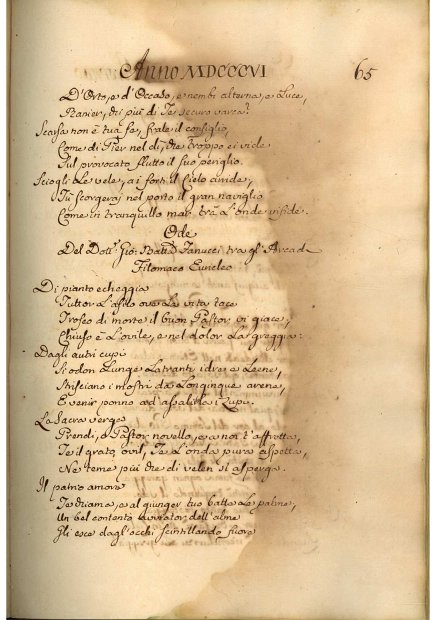 Anno MDCCCVI
65
D'Orto, e d'Occaso, e nembi alterna, e Luce,
Ranier, di più di Te securo varca?
Scarsa non è tua fe, frale il consiglio,
Come di Pier nel dì, che troppo ei vide
Sul provocato flutto il suo periglio.
Sciogli Le vele, ai forti il Cielo arride,
Tu scorgerai nel porto il gran naviglio
Come in tranquillo mar trà L'onde infide.
Ode
Del Dott. Gio: Batta Fanucci tra gl' Arcad
Filomaco Euricleo
Di pianto echeggia
Tuttor L'asilo ove La vita tace
Trofeo di morte il buon Pastor vi giace,
Chiuso è L'ovile, e nel dolor La greggia:
Dagli antri cupi
Si odon Lunge Latranti idre, e Leene,
Strisciano i mostri da Longinque arene,
E venir ponno ad assalirla i Lupi.
La Sacra verga
Prendi, o Pastor novello, e a noi t'affretta,
Te il grato ovil, Te L'onda pura aspetta,
Ne teme più che di velen si asperga.
Il patrio amore
Te chiama, e al giunger tuo batte Le palme,
Un bel contento dell'alme
Gli esce dagl'occhi scintillando fuore